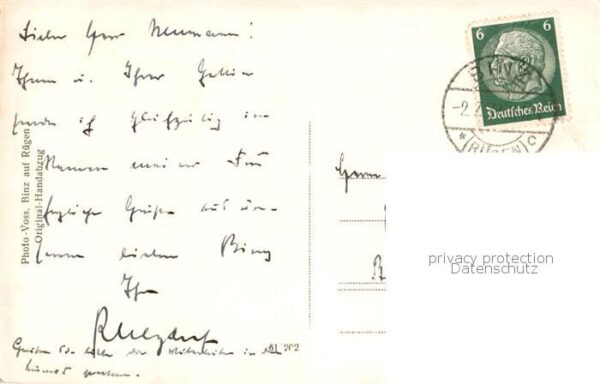 Lieber Herr Neumann!
Ihnen u. Ihrer Gattin
sende ich gleichzeitig im
Namen meiner Frau
herzliche Grüße aus un-
serem lieben Binz
Ihr
Grüßen Sie bitte die Mitarbeiter in
61 202
Photo-Voss, Binz auf Rügen
Original-Handabzug
6 6
Deutsches Reich
BINZ
-2.
(RÜGEN) c
Herrn
B
privacy protection
Datenschutz